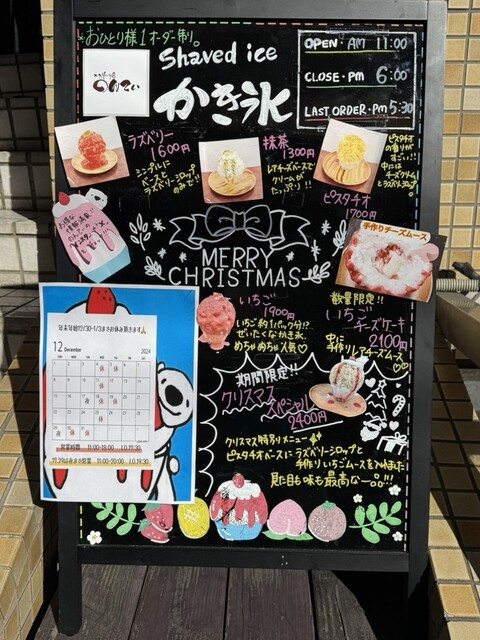 おひとり様1オーダー制。
Shaved ice
かき氷
OPEN・AM 11:00
CLOSE・PM 6:00
LAST ORDER・PM 5:30
ラズベリー
1600円
シンプルに
ベースと
ラズベリーシロップ
のみで!!
抹茶
1300円
レアチーズベースで
クリームが
たっぷり!!
ピスタチオ
の香りが
すごい!!
中には
チーズクリーム
ピスタチオ
1700円
MERRY
CHRISTMAS
手作りチーズムース
いちご
1900円
いちご約1パック分!?
ぜいたくなかき氷
めちゃめちゃ人気♡
数量限定!!
いちご
チーズケーキ
2100円
中に
手作りレアチーズムース
期間限定!!
クリスマス
スペシャル
2400円
クリスマス特別メニュー
ピスタチオベースにラズベリーシロップと
手作りいちごムースを入れた
見た目も味も最高な一品!!!
年末年始12/30-1/3までお休み頂きます
12 December 2024
営業時間 11:00-18:00 l.o.17:30